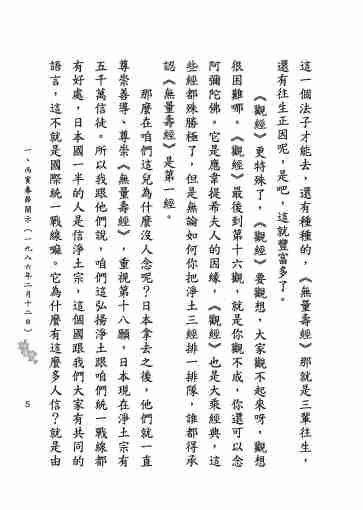 這一個法子才能去，還有種種的，《無量壽經》那就是三輩往生，
還有往生正因呢，是吧，這就豐富多了。
《觀經》更特殊了，《觀經》要觀想，大家觀不起來呀，觀想
很困難哪。《觀經》最後到第十六觀，就是你觀不成，你還可以念
阿彌陀佛。它是應韋提希夫人的因緣，《觀經》也是大乘經典，這
些經都殊勝極了，但是無論如何你把淨土三經排一排隊，誰都得承
認《無量壽經》是第一經。
那麼在咱們這兒為什麼沒人念呢？日本拿去之後，他們就一直
尊崇善導、尊崇《無量壽經》，重視第十八願，日本現在淨土宗有
五千萬信徒。所以我跟他們說，咱們這弘揚淨土跟咱們統一戰線都
有好處，日本國一半的人是信淨土宗，這個國跟我們大家有共同的
語言，這不就是國際統一戰線嘛。它為什麼有這麼多人信？就是由
一、丙寅春節開示（一九八六年二月十二日）
5